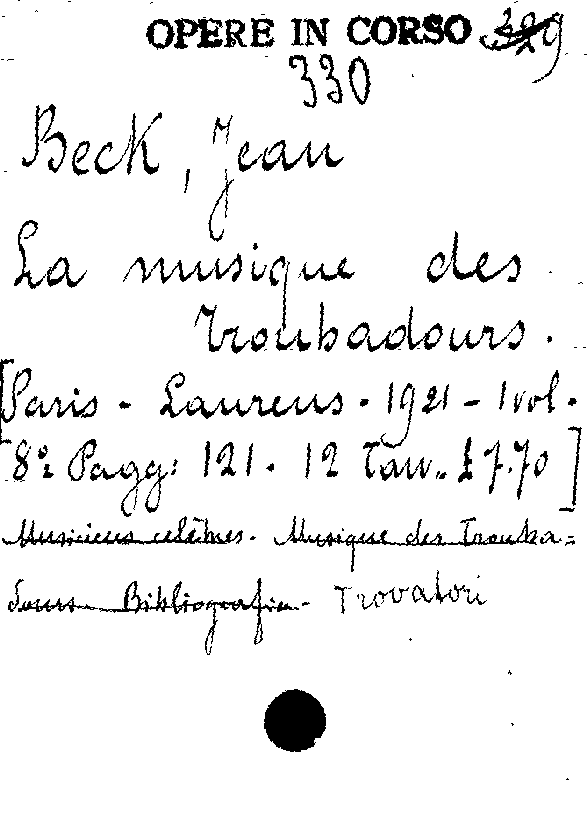 OPERE IN CORSO 329
330
Beck, Jean
La musique des
troubadours.
[Paris - Laurens - 1921 - 1 vol.
8º Pagg: 121. 12 Tav. £ 7.70]
Musiciens celèbres. Musique des Trouba=
dours Bibliografia - Trovatori